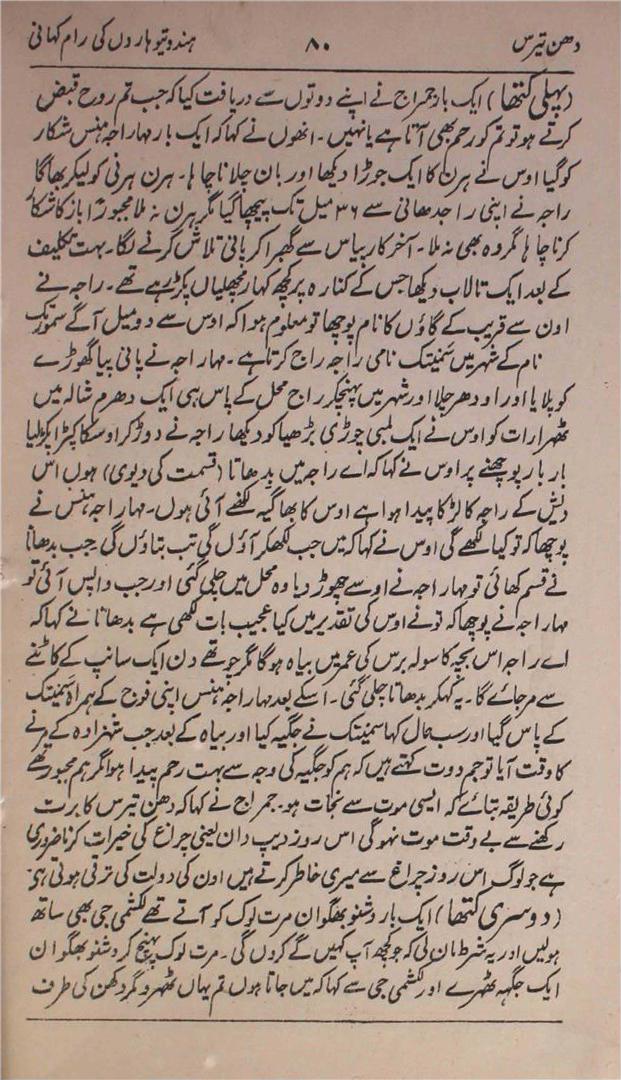 دھن تیرس ۸۰ ہندو تیوہاروں کی رام کہانی
(پہلی کتھا) ایک بار جمراج نے اپنے دوتوں سے دریافت کیا کہ جب تم روح قبض
کرتے ہو تو تم کو رحم بھی آتا ہے یا نہیں۔ انھوں نے کہا کہ ایک بار مہاراجہ ہنس شکار
کو گیا اوس نے ہرن کا ایک جوڑا دیکھا اور بان چلانا چاہا۔ ہرن ہرنی کو لیکر بھاگا
راجہ نے اپنی راجدھانی سے ۳۶ میل تک پیچھا کیا مگر ہرن نہ ملا مجبوراً باز کا شکار
کرنا چاہا مگر وہ بھی نہ ملا۔ آخر کار پیاس سے گھبرا کر پانی تلاش کرنے لگا۔ بہت تکلیف
کے بعد ایک تالاب دیکھا جس کے کنارہ پر کچھ کہار مچھلیاں پکڑ رہے تھے۔ راجہ نے
اون سے قریب کے گاؤں کا نام پوچھا تو معلوم ہوا کہ اوس سے دو میل آگے
نام کے شہر میں سمنیتک نامی راجہ راج کرتا ہے۔ مہاراجہ نے پانی پیا گھوڑے
کو پلایا اور اودھر چلا اور شہر میں پہنچکر راج محل کے پاس ہی ایک دھرم شالہ میں
ٹھہرا رات کو اوس نے ایک لمبی چوڑی بڑھیا کو دیکھا راجہ نے دوڑ کر اوسکا کپڑا پکڑ لیا
بار بار پوچھنے پر اوس نے کہا کہ اے راجہ میں بدھاتا (قسمت کی دیوی) ہوں اس
دیش کے راجہ کا لڑکا پیدا ہوا ہے اوس کا بھاگیہ لکھنے آئی ہوں۔ مہاراجہ ہنس نے
پوچھا کہ تو کیا لکھے گی اوس نے کہا کہ میں جب لکھکر آؤں گی تب بتاؤں گی جب بدھاتا
نے قسم کھائی تو مہاراجہ نے اوسے چھوڑ دیا وہ محل میں چلی گئی اور جب واپس آئی تو
مہاراجہ نے پوچھا کہ تو نے اوس کی تقدیر میں کیا عجیب بات لکھی ہے بدھاتا نے کہا کہ
اے راجہ اس بچہ کا سولہ برس کی عمر میں بیاہ ہوگا مگر چوتھے دن ایک سانپ کے کاٹنے
سے مر جائے گا۔ یہ کہکر بدھاتا چلی گئی۔ اسکے بعد مہاراجہ ہنس اپنی فوج کے ہمراہ سمنیتک
کے پاس گیا اور سب حال کہا سمنیتک نے جگیہ کیا اور بیاہ کے بعد جب شہزادہ کے مرنے
کا وقت آیا تو جم دوت کہتے ہیں کہ ہم کو جگیہ کی وجہ سے بہت رحم پیدا ہوا مگر ہم مجبور تھے
کوئی طریقہ بتائے کہ ایسی موت سے نجات ہو۔ جمراج نے کہا کہ دھن تیرس کا برت
رکھنے سے بے وقت موت نہوگی اس روز دیپ دان یعنی چراغ کی خیرات کرنا ضروری
ہے جو لوگ اس روز چراغ سے میری خاطر کرتے ہیں اون کی دولت کی ترقی ہوتی ہی۔
(دوسری کتھا) ایک بار وشنو بھگوان مرت لوک کو آتے تھے لکشمی جی بھی ساتھ
ہولیں اور یہ شرط مان لی کہ جو کچھ آپ کہیں گے کروں گی۔ مرت لوک پہنچ کر وشنو بھگوان
ایک جگہہ ٹھہرے اور لکشمی جی سے کہا کہ میں جاتا ہوں تم یہاں ٹھہرو مگر دکھن کی طرف